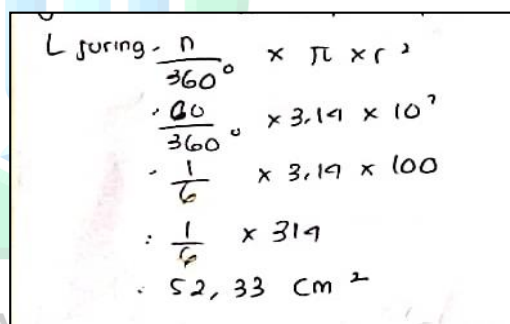 L juring = n/360° × π × r²
= 60/360° × 3,14 × 10²
= 1/6 × 3,14 × 100
= 1/6 × 314
= 52,33 cm²